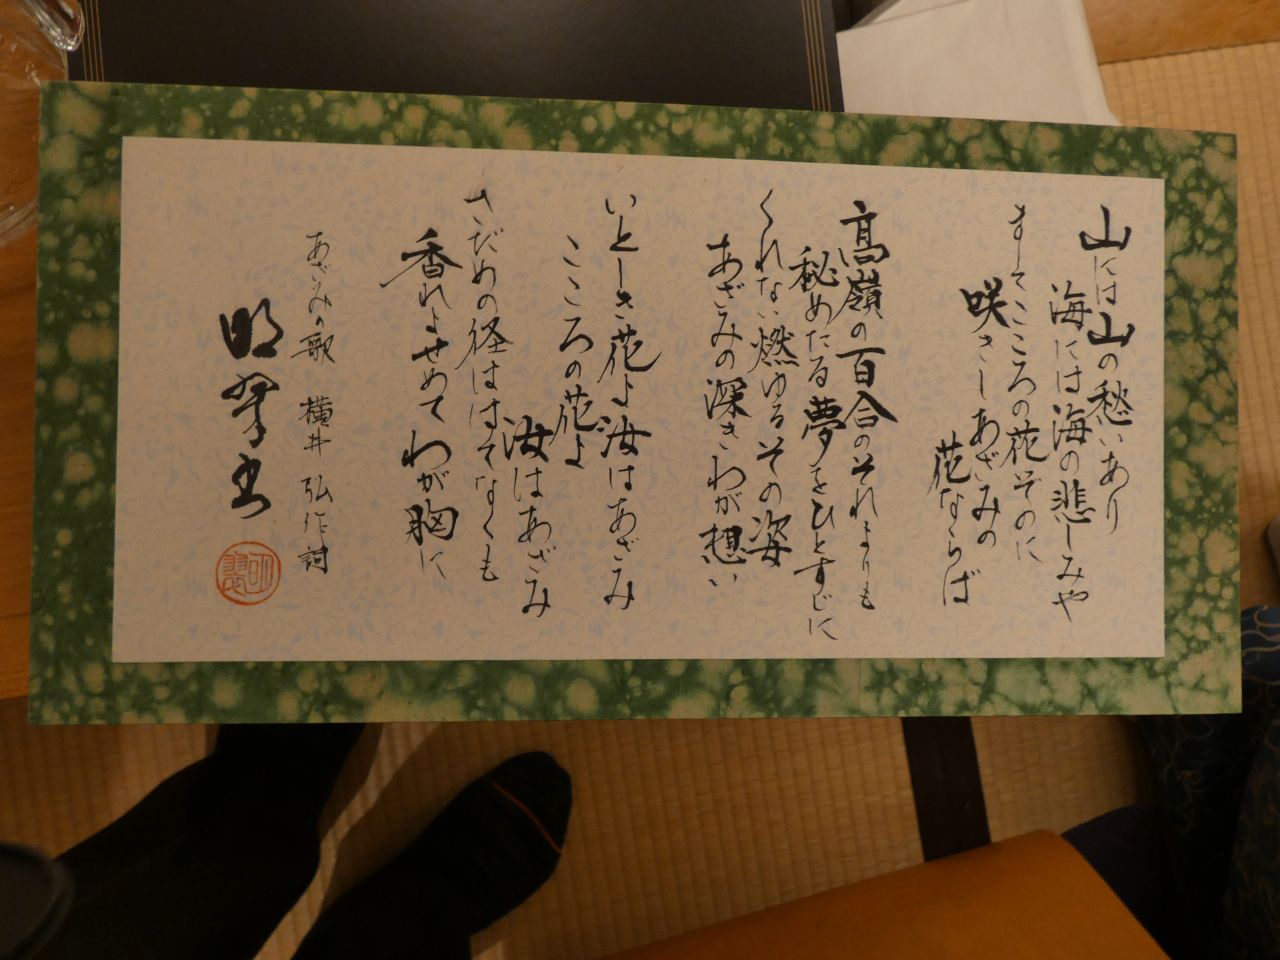 山には山の愁いあり
海には海の悲しみや
ましてこころの花ぞのに
咲きしあざみの
花ならば
高嶺の百合のそれよりも
秘めたる夢をひとすじに
くれない燃ゆるその姿
あざみの深きわが想い
いとしき花よ汝はあざみ
こころの花よ
汝はあざみ
さだめの径ははてなくも
香れよせめてわが胸に
あざみの歌 横井弘作詩